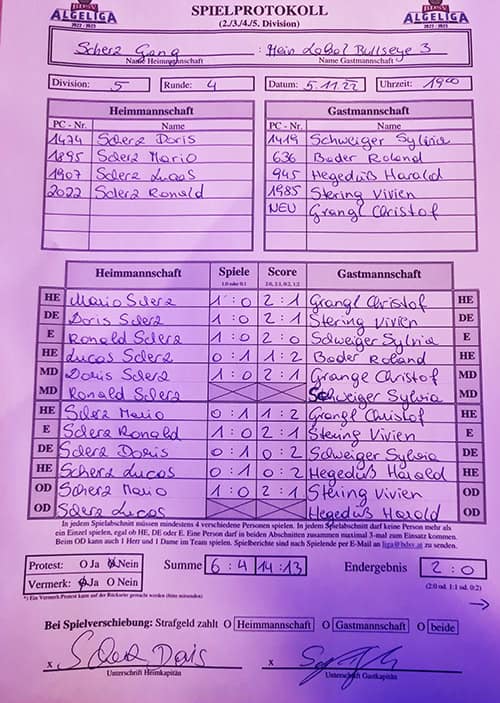 BDSV
ALGELIGA
2022 / 2023
SPIELPROTOKOLL
(2./3./4./5. Division)
BDSV
ALGELIGA
2022 / 2023
Scherz Gang : Mein Lobal Bullseye 3
Name Heimmannschaft Name Gastmannschaft
Division: 5 Runde: 4 Datum: 5.11.22 Uhrzeit: 19⁰⁰
Heimmannschaft Gastmannschaft
PC - Nr. Name PC - Nr. Name
1474 Scherz Doris 1419 Schweiger Sylvia
1895 Scherz Mario 636 Bader Roland
1907 Scherz Lucas 945 Hegedüß Harald
2022 Scherz Ronald 1985 Stering Vivien
NEU Grangl Christof
Heimmannschaft Spiele Score Gastmannschaft
1:0 oder 0:1 2:0, 2:1, 0:2, 1:2
HE Mario Scherz 1 : 0 2 : 1 Grangl Christof HE
DE Doris Scherz 1 : 0 2 : 1 Stering Vivien DE
E Ronald Scherz 1 : 0 2 : 0 Schweiger Sylvia E
HE Lucas Scherz 0 : 1 1 : 2 Bader Roland HE
MD Doris Scherz 1 : 0 2 : 1 Grangl Christof MD
MD Ronald Scherz Schweiger Sylvia MD
HE Scherz Mario 0 : 1 1 : 2 Grangl Christof HE
E Scherz Ronald 1 : 0 2 : 1 Stering Vivien E
DE Scherz Doris 0 : 1 0 : 2 Schweiger Sylvia DE
HE Scherz Lucas 0 : 1 0 : 2 Hegedüß Harold HE
OD Scherz Mario 1 : 0 2 : 1 Stering Vivien OD
OD Scherz Lucas Hegedüß Harold OD
In jedem Spielabschnitt müssen mindestens 4 verschiedene Personen spielen. In jedem Spielabschnitt darf keine Person mehr als
ein Einzel spielen, egal ob HE, DE oder E. Eine Person darf in beiden Abschnitten zusammen maximal 3-mal zum Einsatz kommen.
Beim OD kann auch 1 Herr und 1 Dame im Team spielen. Spielberichte sind nach Spielende per E-Mail an liga@bdsv.at zu senden.
Protest: O Ja O Nein Summe 6 : 4 14 : 13 Endergebnis 2 : 0
Vermerk: O Ja O Nein (2:0 od. 1:1 od. 0:2)
*: Ein Vermerk/Protest kann auf der Rückseite gemacht werden (bitte mitsenden)
Bei Spielverschiebung: Strafgeld zahlt O Heimmannschaft O Gastmannschaft O beide
x Scherz Doris x
Unterschrift Heimkapitän Unterschrift Gastkapitän